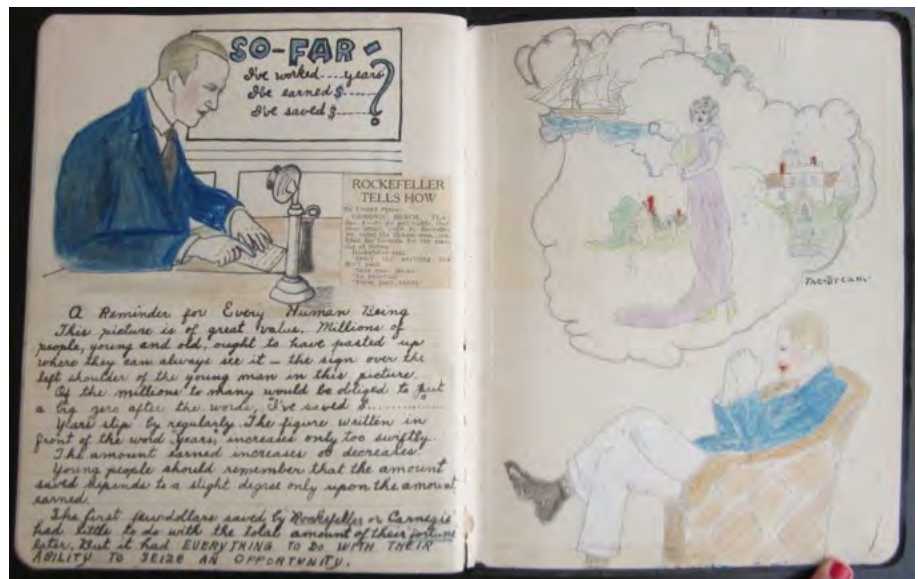 SO-FAR-
I've worked....years
I've earned $......
I've saved $.......
?
ROCKEFELLER
TELLS HOW
ORMOND BEACH, FLA.
A Reminder for Every Human Being
This picture is of great value. Millions of
people, young and old, ought to have pasted up
where they can always see it — the sign over the
left shoulder of the young man in this picture.
Of the millions to many would be obliged to put
a big zero after the words, "I've saved $............
Years slip by regularly. The figure written in
front of the word "years," increases only too swiftly.
The amount earned increases or decreases
Young people should remember that the amount
saved depends to a slight degree only upon the amount
earned.
The first few dollars saved by Rockefeller or Carnegie
had little to do with the total amount of their fortune
later. But it had EVERYTHING TO DO WITH THEIR
ABILITY TO SEIZE AN OPPORTUNITY.
The-Dream'